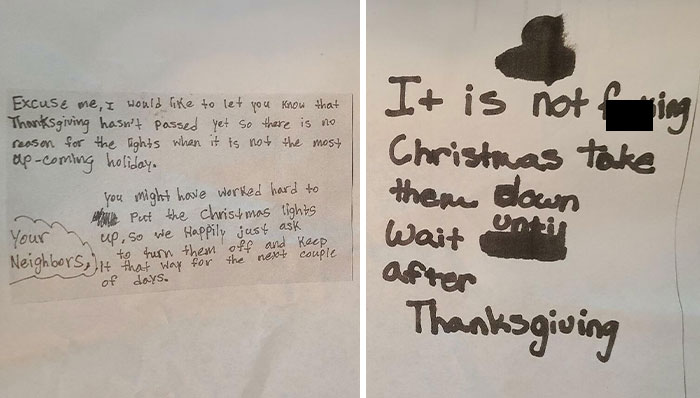 Excuse me, I would like to let you know that
Thanksgiving hasn't passed yet so there is no
reason for the lights when it is not the most
up-coming holiday.
you might have worked hard to
Put the Christmas lights
up, so we Happily just ask
to turn them off and keep
it that way for the next couple
of days.
Your
Neighbors,
It is not f ing
Christmas take
them down
Wait until
after
Thanksgiving